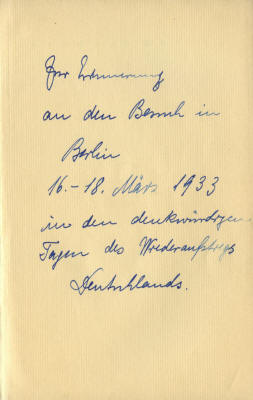 Zur Erinnerung
an den Besuch in
Berlin
16.-18. März 1933
in den denkwürdigen
Tagen des Wiederaufstiegs
Deutschlands.